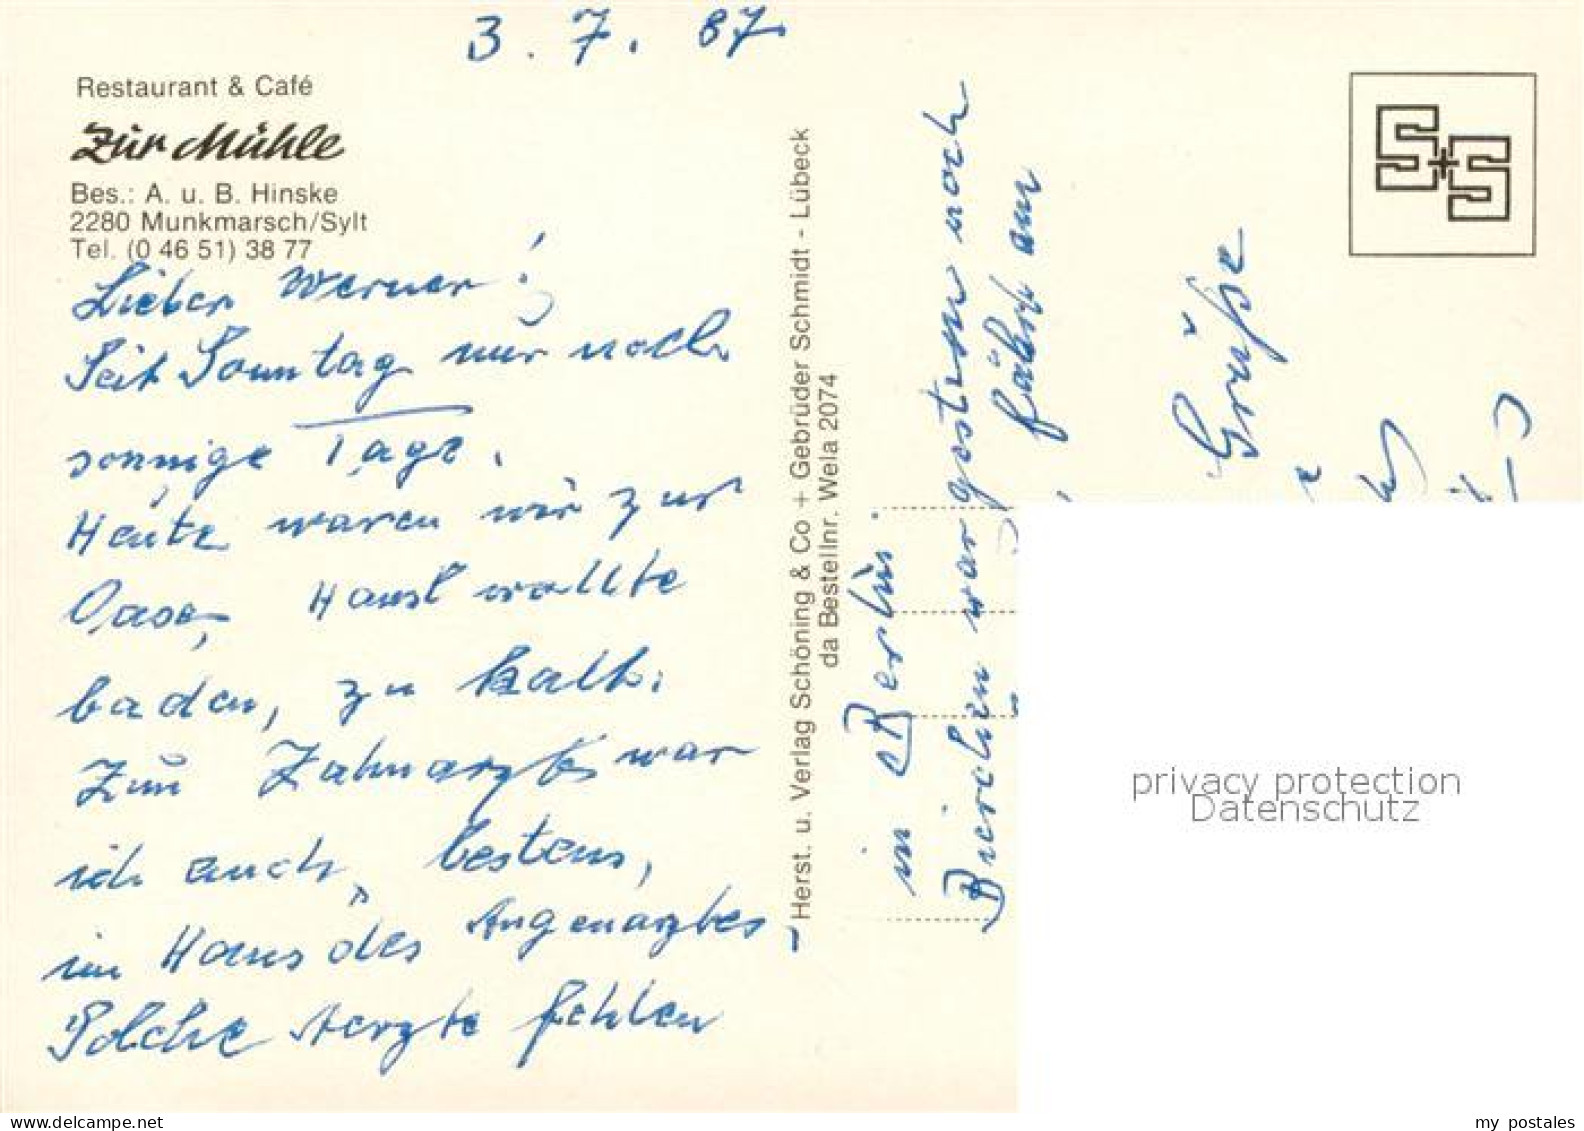 3.7.87
Restaurant & Café
Zur Mühle
Bes.: A. u. B. Hinske
2280 Munkmarsch/Sylt
Tel. (0 46 51) 38 77
Lieber Werner!
Seit Sonntag nur noch
sonnige Tage.
Heute waren wir zur
Oase, Hansl wollte
baden, zu kalt.
Zum Zahnarzt war
ich auch, bestens,
im Haus des Augenarztes -
Solche Aerzte fehlen
Herst. u. Verlag Schöning & Co + Gebrüder Schmidt - Lübeck
da Bestellnr. Wela 2074
in Berlin.
war gestern noch
fährt am
Grüße
S+S
privacy protection
Datenschutz
my postales